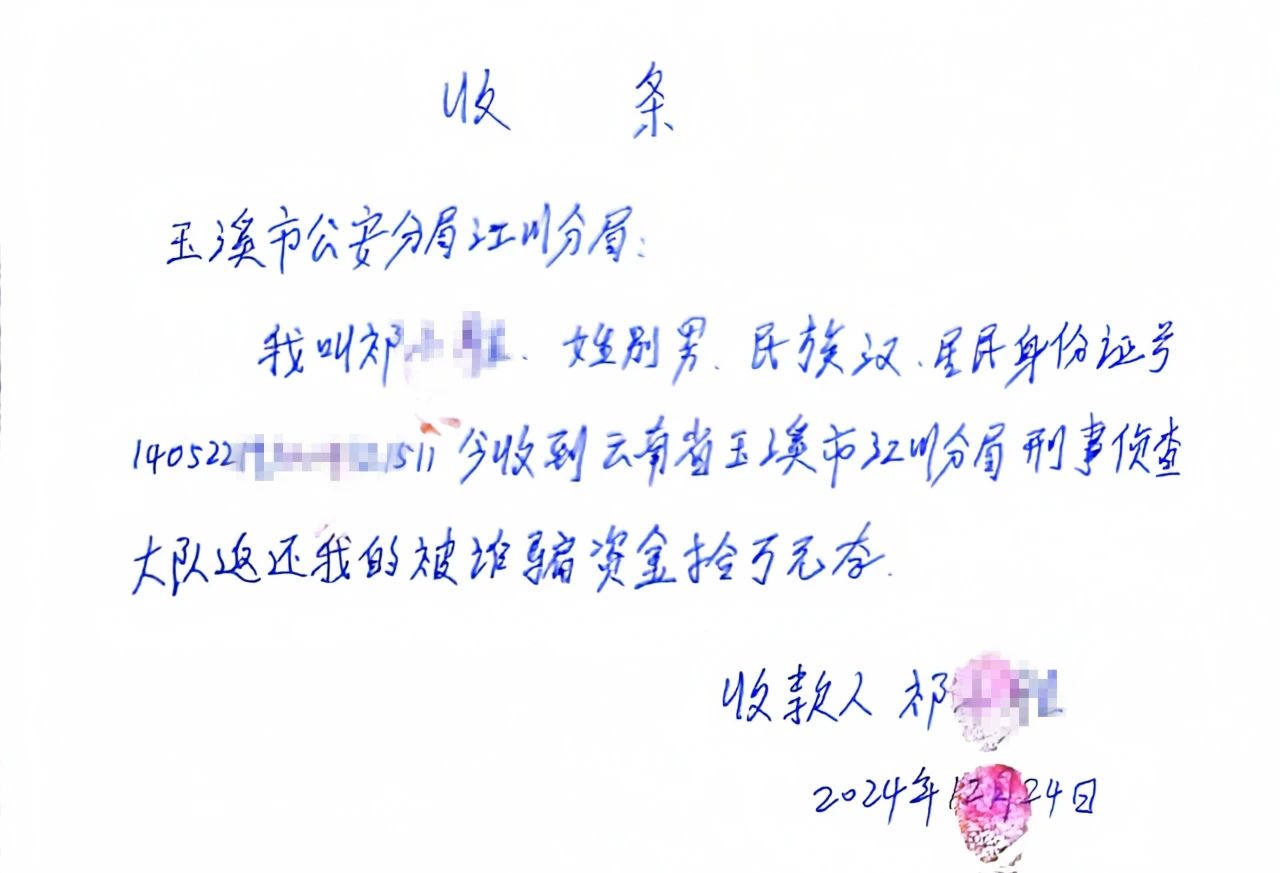 收 条
玉溪市公安分局江川分局：
我叫祁、姓别男、民族汉、居民身份证号
140522 1511今收到云南省玉溪市江川分局刑事侦查
大队返还我的被诈骗资金拾万元存.
收款人 祁
2024年12月24日